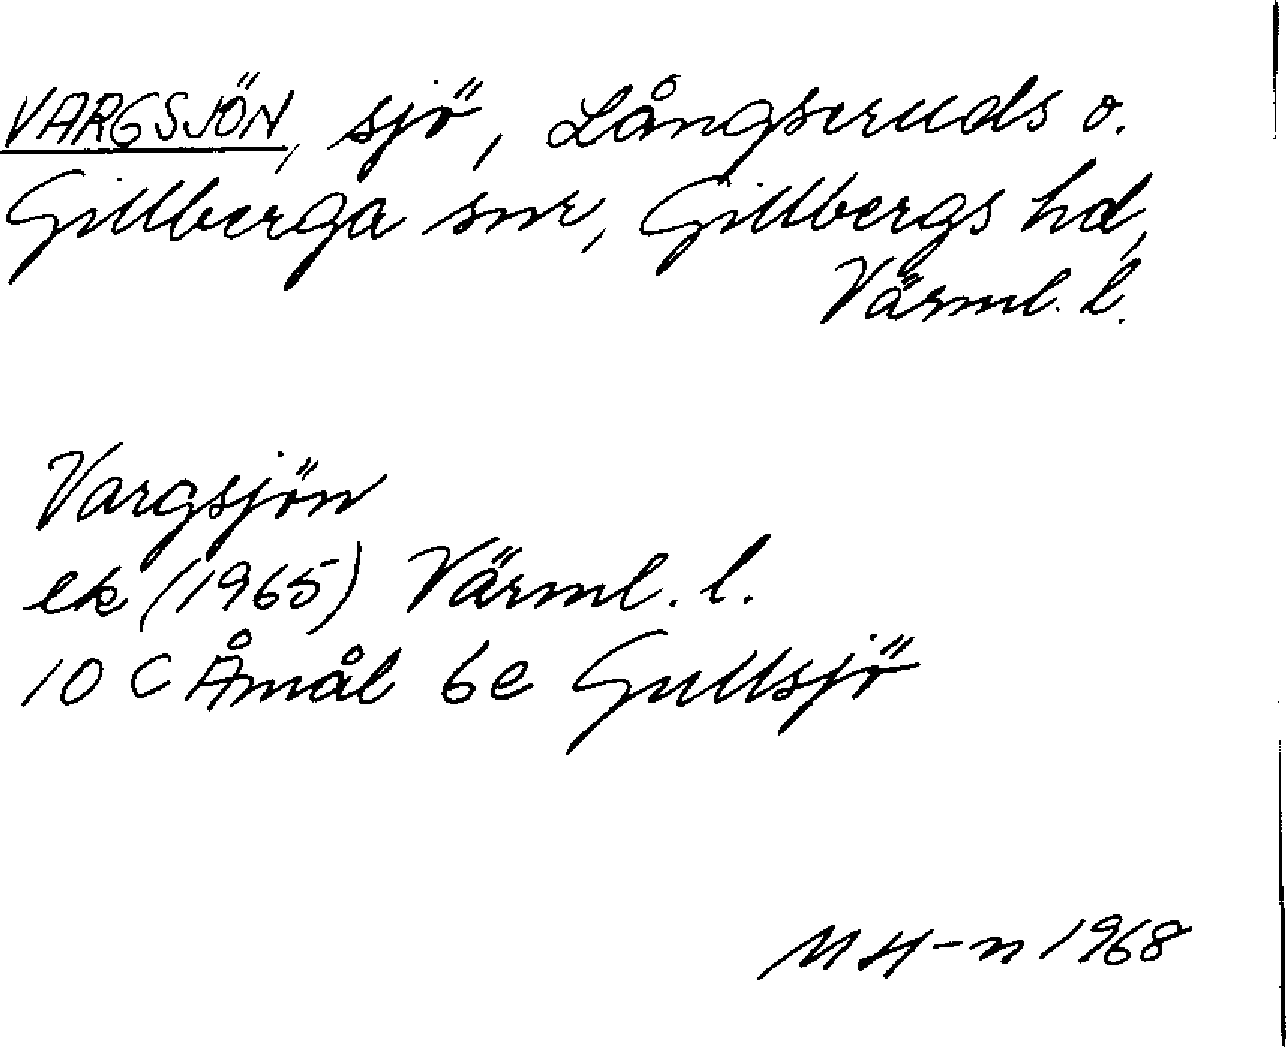 VARGSJÖN, sjö, Långseruds o.
Gillberga snr, Gillbergs hd,
Värml. l.
Vargsjön
ek (1965) Värml. l.
10 C Åmål 6e Gullsjö
M H-n 1968